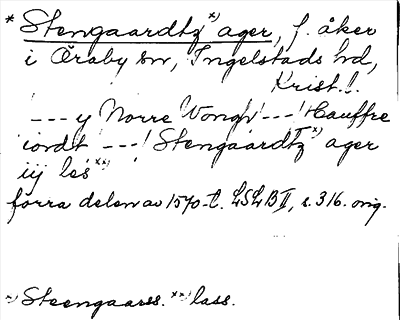 * Stengaardtz*) ager, f. åker
i Öraby sn, Ingelstads hd,
Krist. l.
--- y Norre Vongh ---! Hauffre
iordt ---! Stengaardtz*) ager
iij les**)
förra delen av 1570-t. LSLB II, s. 316. orig.
*) Steengaarss. **) lass.